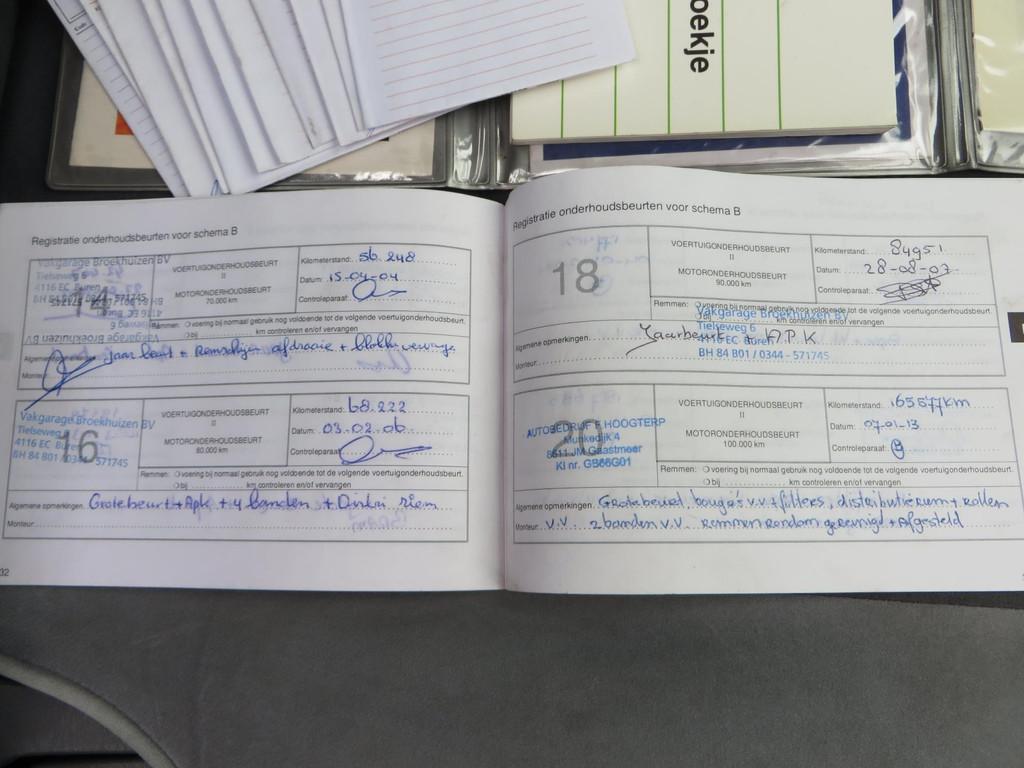 oekje
Registratie onderhoudsbeurten voor schema B
Vakgarage Broekhuizen BV
Tielseweg 6
4116 EC Buren
BH 84 B01 / 0344 - 571745
14
VOERTUIGONDERHOUDSBEURT
II
MOTORONDERHOUDSBEURT
70.000 km
Kilometerstand: 56.248
Datum: 15-04-04
Controleparaaf:
Remmen: voering bij normaal gebruik nog voldoende tot de volgende voertuigonderhoudsbeurt.
bij km controleren en/of vervangen
Algemene opmerkingen. Jaar beurt + Remschijven afdraaie + blokken vervange
Monteur:
Vakgarage Broekhuizen BV
Tielseweg 6
4116 EC Buren
BH 84 B01 / 0344 - 571745
16
VOERTUIGONDERHOUDSBEURT
II
MOTORONDERHOUDSBEURT
80.000 km
Kilometerstand: 68.222
Datum: 03-02-06
Controleparaaf:
Remmen: voering bij normaal gebruik nog voldoende tot de volgende voertuigonderhoudsbeurt.
bij km controleren en/of vervangen
Algemene opmerkingen: Grote beurt + Apk + 4 banden + riem
Monteur:
32
Registratie onderhoudsbeurten voor schema B
18
VOERTUIGONDERHOUDSBEURT
II
MOTORONDERHOUDSBEURT
90.000 km
Kilometerstand: 84951
Datum: 28-08-07
Controleparaaf:
Remmen: voering bij normaal gebruik nog voldoende tot de volgende voertuigonderhoudsbeurt.
bij km controleren en/of vervangen
Vakgarage Broekhuizen BV
Tielseweg 6
4116 EC Buren
BH 84 B01 / 0344 - 571745
Algemene opmerkingen. Jaarbeurt + A.P.K
Monteur:
AUTOBEDRIJF F. HOOGTERP
Munkedijk 4
8611 JM Gaastmeer
KI nr. GB66G01
VOERTUIGONDERHOUDSBEURT
II
MOTORONDERHOUDSBEURT
100.000 km
Kilometerstand: 165577km
Datum: 07-01-13
Controleparaaf:
Remmen: voering bij normaal gebruik nog voldoende tot de volgende voertuigonderhoudsbeurt.
bij km controleren en/of vervangen
Algemene opmerkingen. Grote beurt, bougies v.v. + filters, distributieriem + rollen
Monteur: v.v. 2 banden v.v. remmen rondom gereinigd + Afgesteld